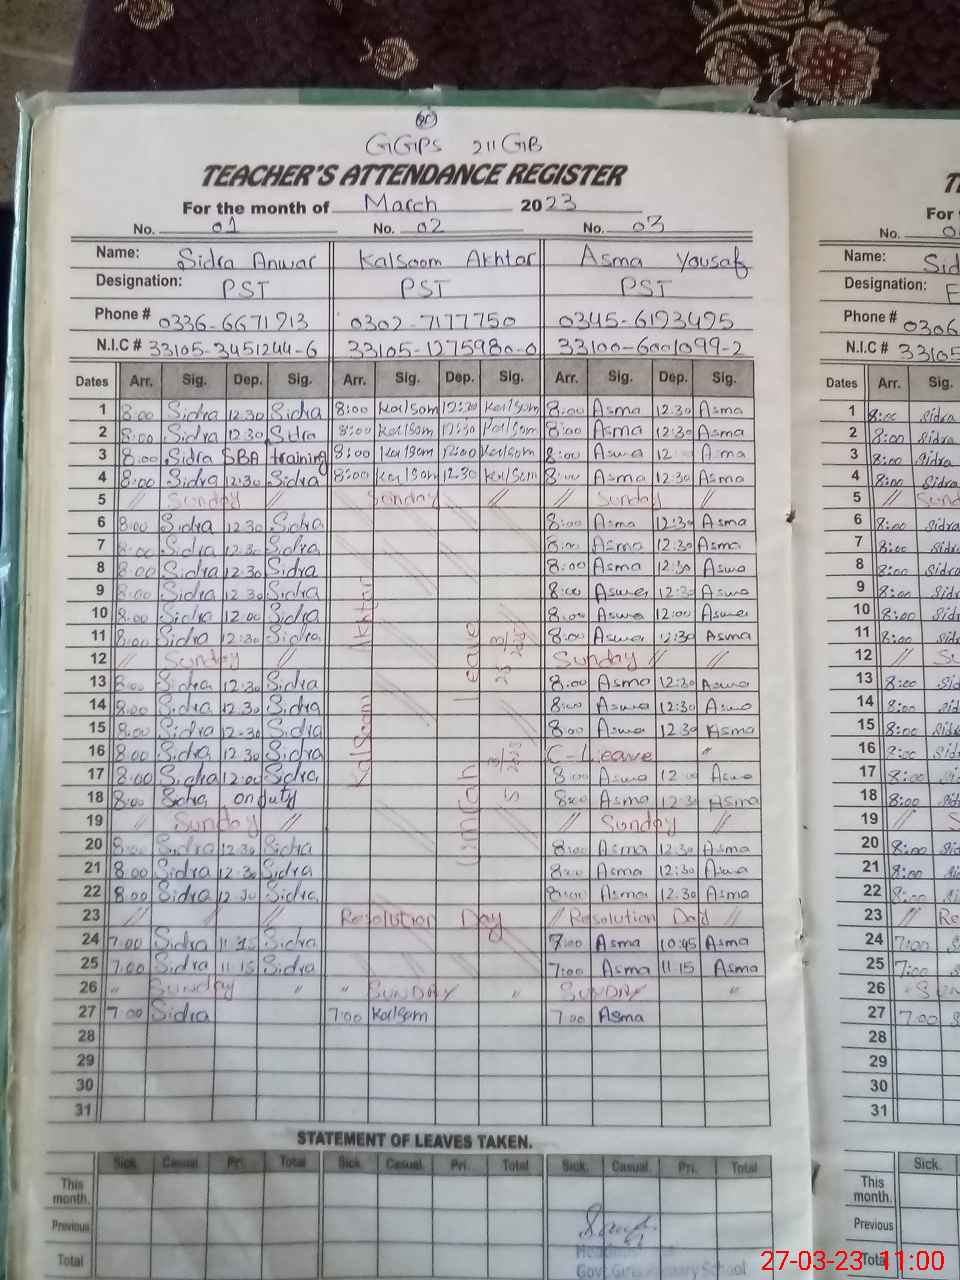 GGPS 211 GB
TEACHER'S ATTENDANCE REGISTER
For the month of March 2023
No. 01 No. 02 No. 03 No.
Name: Sidra Anwar Kalsoom Akhtar Asma Yousaf Name:
Designation: PST PST PST Designation:
Phone # 0336-6671913 0302-7177750 0345-6193495 Phone #
N.I.C # 33105-3451244-6 33105-1275980-0 33100-6001099-2 N.I.C # 33105
Dates Arr. Sig. Dep. Sig. Arr. Sig. Dep. Sig. Arr. Sig. Dep. Sig. Dates Arr. Sig.
1 8:00 Sidra 12:30 Sidra 8:00 Kalsom 12:30 Kalsom 8:00 Asma 12:30 Asma 1 8:00 Sidra
2 8:00 Sidra 12:30 Sidra 8:00 Kalsom 12:30 Kalsom 8:00 Asma 12:30 Asma 2 8:00 Sidra
3 8:00 Sidra SBA training 8:00 Kalsom 12:00 Kalsom 8:00 Asma Asma 3 8:00 Sidra
4 8:00 Sidra 12:30 Sidra 8:00 Kalsom 12:30 Kalsom 8:00 Asma 12:30 Asma 4 8:00 Sidra
5 // Sunday // Sunday // // Sunday // 5 //
6 8:00 Sidra 12:30 Sidra 8:00 Asma 12:30 Asma 6 8:00 Sidra
7 8:00 Sidra 12:30 Sidra 8:00 Asma 12:30 Asma 7 8:00 Sidra
8 8:00 Sidra 12:30 Sidra 8:00 Asma 12:30 Asma 8 8:00 Sidra
9 8:00 Sidra 12:30 Sidra 8:00 Asma 12:30 Asma 9 8:00
10 8:00 Sidra 12:00 Sidra 8:00 Asma 12:00 Asma 10 8:00
11 8:00 Sidra 12:30 Sidra 8:00 Asma 12:30 Asma 11 8:00
12 // Sunday // Sunday // // 12 //
13 8:00 Sidra 12:30 Sidra 8:00 Asma 12:30 Asma 13 8:00
14 8:00 Sidra 12:30 Sidra 8:00 Asma 12:30 Asma 14 8:00
15 8:00 Sidra 12:30 Sidra 8:00 Asma 12:30 Asma 15 8:00
16 8:00 Sidra 12:30 Sidra C-Lieave " 16 8:00
17 8:00 Sidra 12:00 Sidra 8:00 Asma 12:00 Asma 17 8:00
18 8:00 Sidra on duty 8:00 Asma 12:30 Asma 18 8:00
19 // Sunday // // Sunday // 19 //
20 8:00 Sidra 12:30 Sidra 8:00 Asma 12:30 Asma 20 8:00
21 8:00 Sidra 12:30 Sidra 8:00 Asma 12:30 Asma 21 8:00
22 8:00 Sidra 12:30 Sidra 8:00 Asma 12:30 Asma 22 8:00
Kalsoom Akhtar
Umrah leave
5 3/2023
25 3/2023
23 // // // Resolution Day // Resolution Day // 23 //
24 7:00 Sidra 11:15 Sidra 7:00 Asma 10:45 Asma 24 7:00
25 7:00 Sidra 11:15 Sidra 7:00 Asma 11:15 Asma 25 7:00
26 " SUNDAY " " SUNDAY " SUNDAY " 26
27 7:00 Sidra 7:00 Kalsom 7:00 Asma 27 7:00
28 28
29 29
30 30
31 31
STATEMENT OF LEAVES TAKEN.
Sick. Casual. Pri. Total Sick. Casual. Pri. Total Sick. Casual. Pri. Total Sick.
This month. This month.
Previous Previous
Total Total
Govt. Girls Primary School
27-03-23 11:00